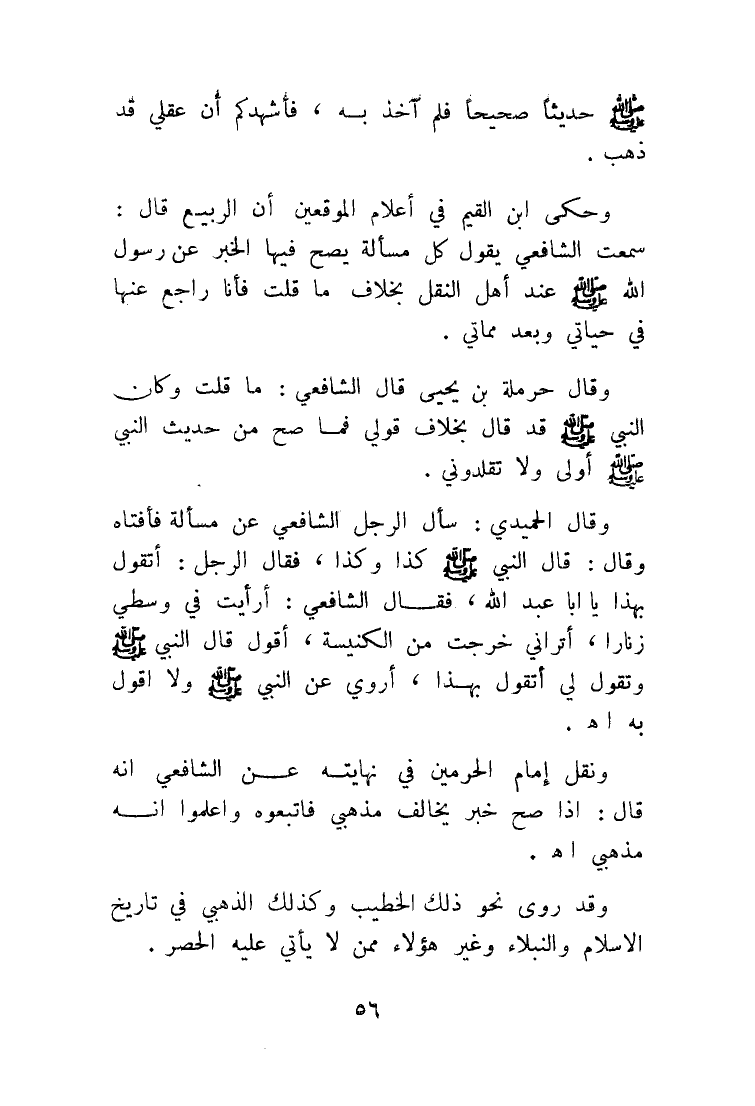 ﷺ حديثاً صحيحاً فلم آخذ به ، فأشهدكم أن عقلي قد
ذهب .
وحكى ابن القيم في أعلام الموقعين أن الربيع قال :
سمعت الشافعي يقول كل مسألة يصح فيها الخبر عن رسول
الله ﷺ عند أهل النقل بخلاف ما قلت فأنا راجع عنها
في حياتي وبعد مماتي .
وقال حرملة بن يحيى قال الشافعي : ما قلت وكان
النبي ﷺ قد قال بخلاف قولي فما صح من حديث النبي
ﷺ أولى ولا تقلدوني .
وقال الحميدي : سأل الرجل الشافعي عن مسألة فأفتاه
وقال : قال النبي ﷺ كذا وكذا ، فقال الرجل : أتقول
بهذا يا ابا عبد الله ، فقال الشافعي : أرأيت في وسطي
زنارا ، أتراني خرجت من الكنيسة ، أقول قال النبي ﷺ
وتقول لي أتقول بهذا ، أروي عن النبي ﷺ ولا اقول
به اه .
ونقل إمام الحرمين في نهايته عن الشافعي انه
قال : اذا صح خبر يخالف مذهبي فاتبعوه واعلموا انه
مذهبي اه .
وقد روى نحو ذلك الخطيب وكذلك الذهبي في تاريخ
الاسلام والنبلاء وغير هؤلاء ممن لا يأتي عليه الحصر .
٥٦